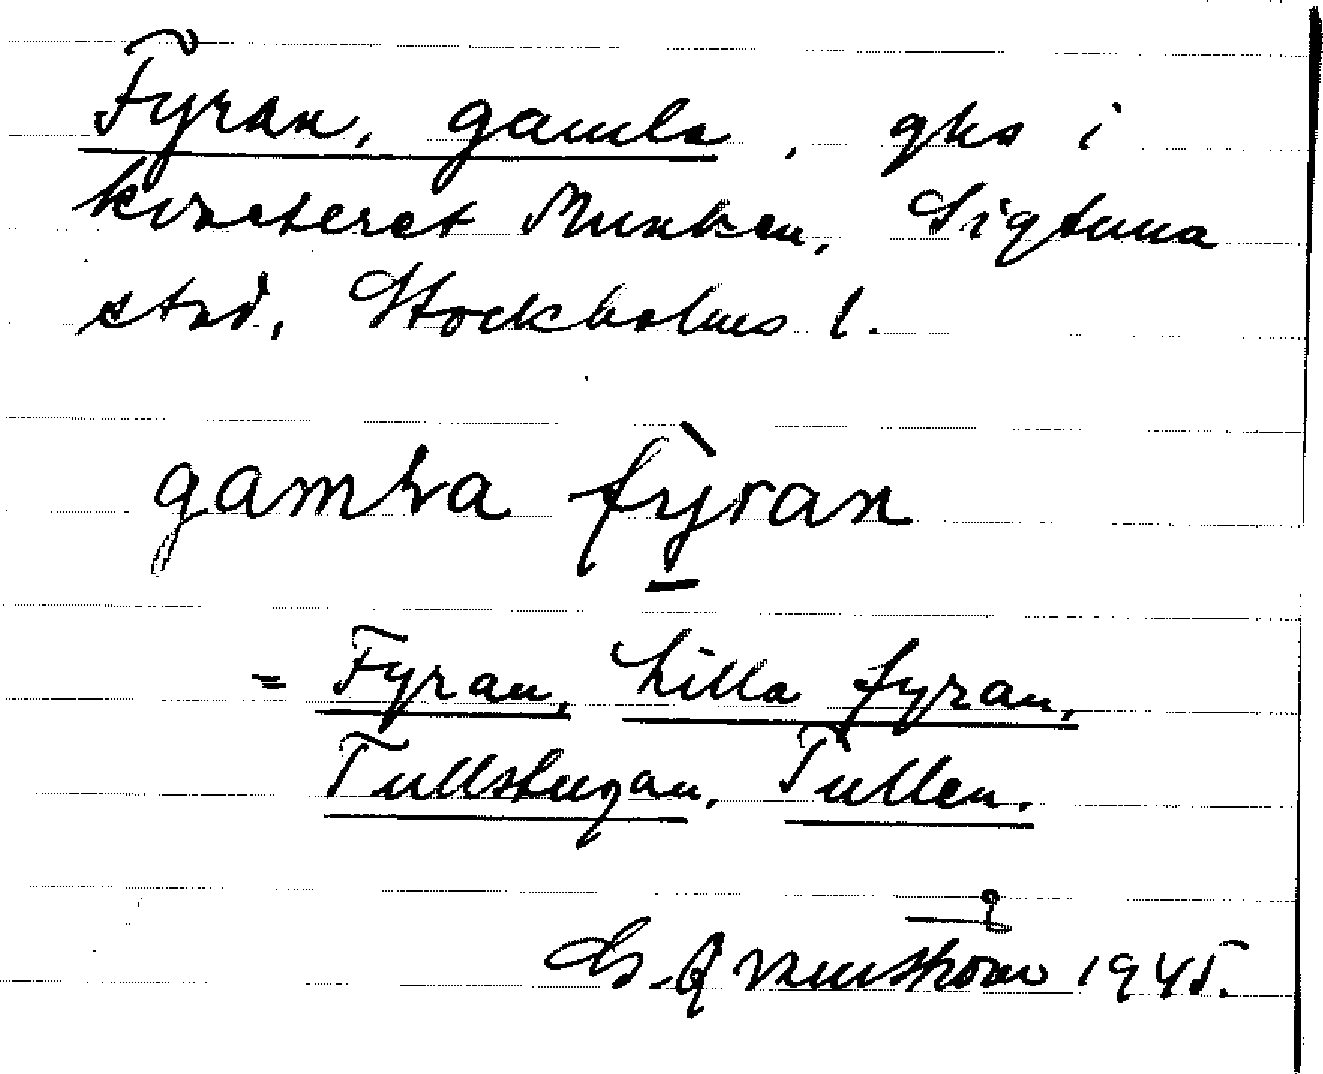 Fyran, gamla, ghs i
kvarteret Munken, Sigtuna
stad, Stockholms l.
gamla fỳ̱ran
= Fyran, Lilla fyran,
Tullstugan, Tullen.
1945.